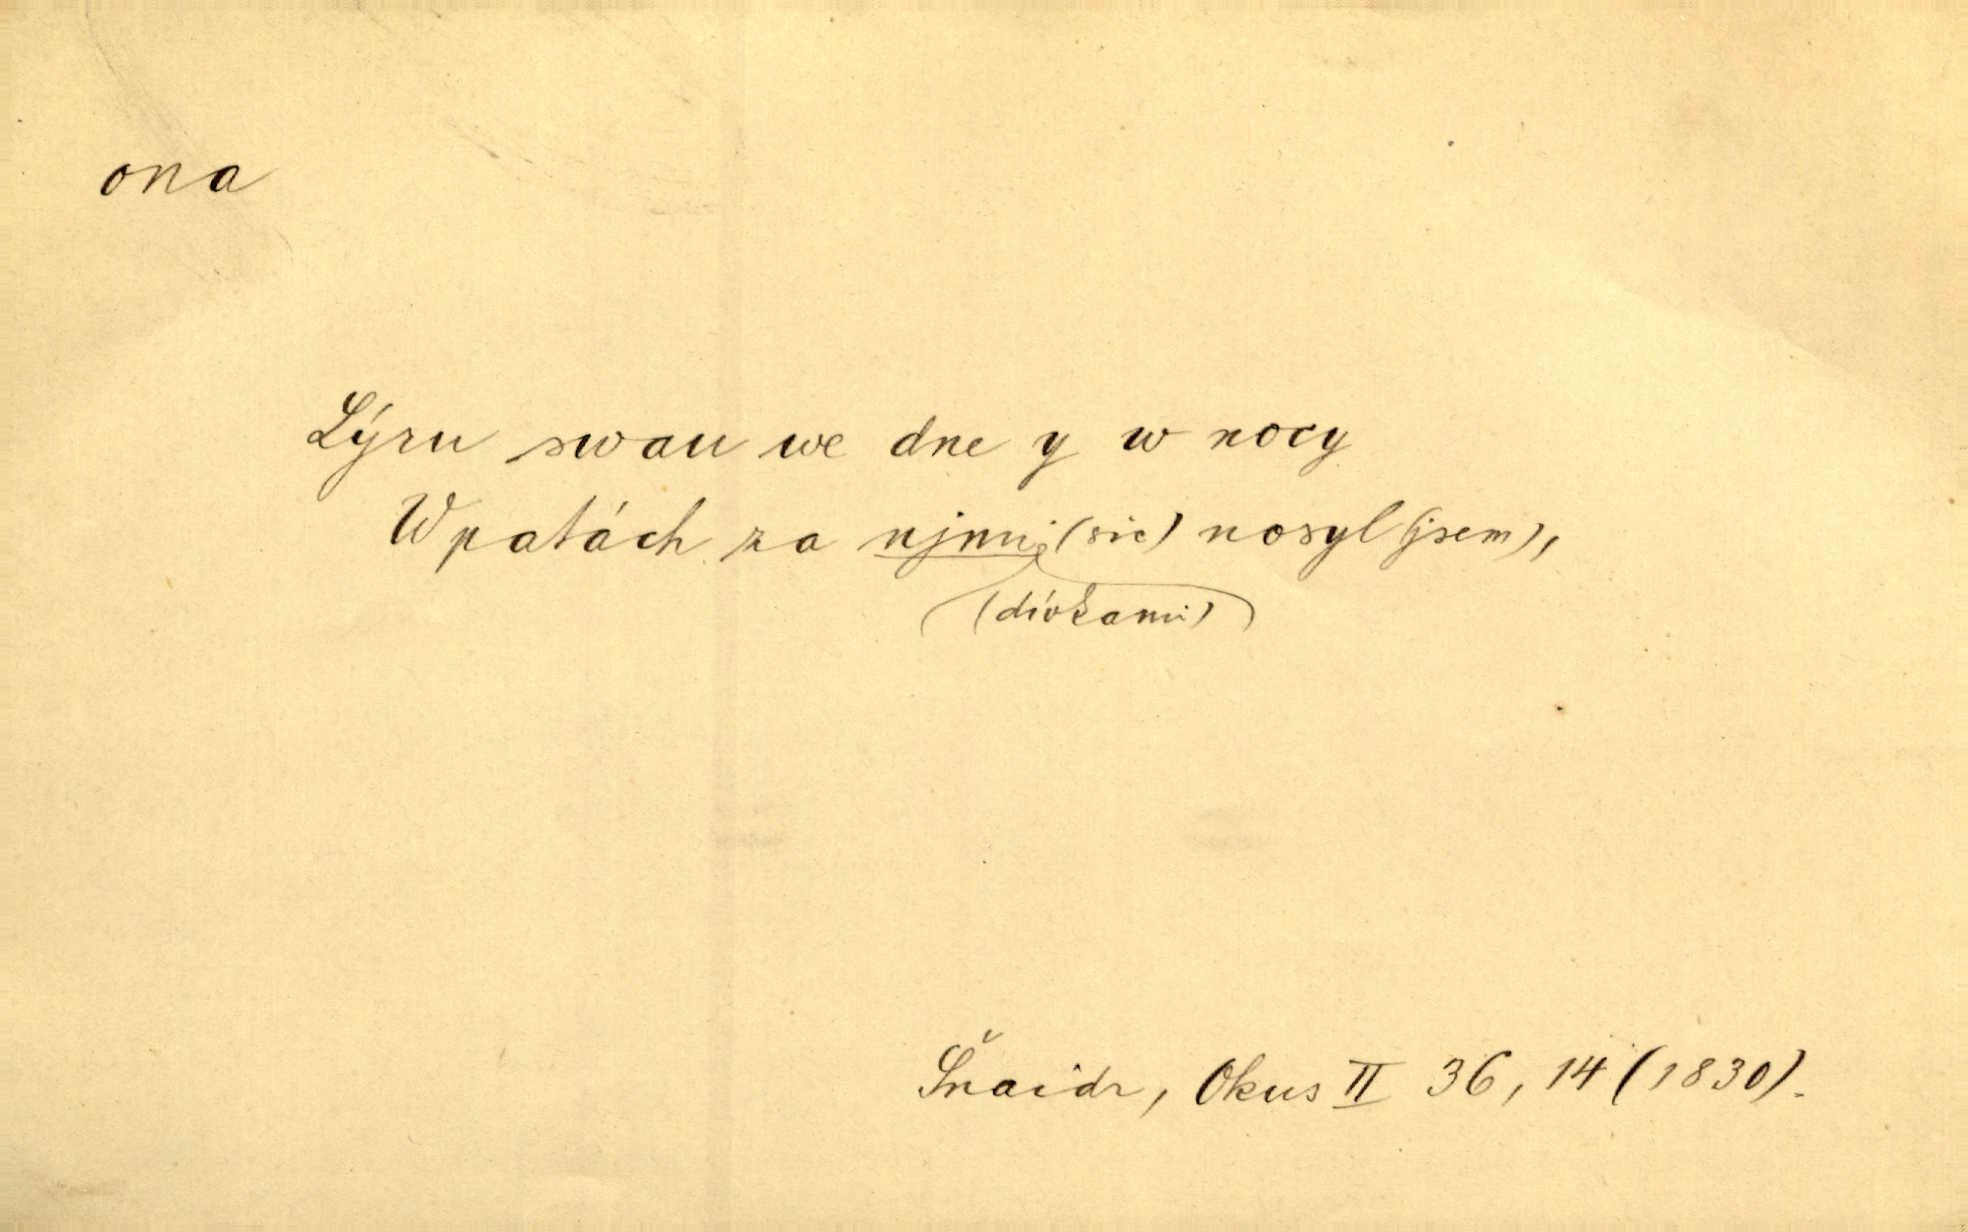 ona
Lýru swau we dne y w nocy
W patách za njmi (sic) nosyl (jsem),
(dívkami)
Šnaidr, Okus II 36, 14 (1830).